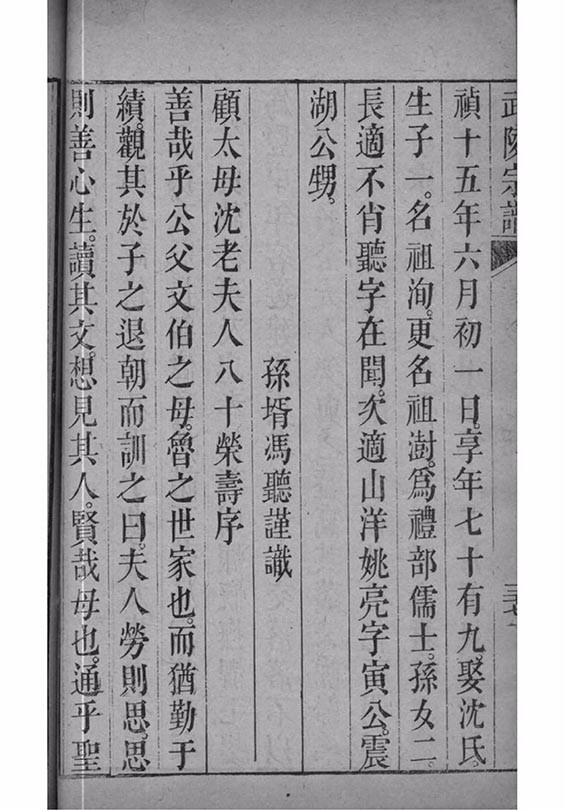 武陵宗譜
禎十五年六月初一日。享年七十有九。娶沈氏。
生子一。名祖洵。更名祖澍。爲禮部儒士。孫女二。
長適不肖聽字在聞。次適山洋姚亮字寅公。震
湖公甥。
孫壻馮聽謹識
顧太母沈老夫人八十榮壽序
善哉乎公父文伯之母。魯之世家也。而猶勤于
績。觀其於子之退朝而訓之曰。夫人勞則思。思
則善心生。讀其文。想見其人。賢哉母也。通乎聖